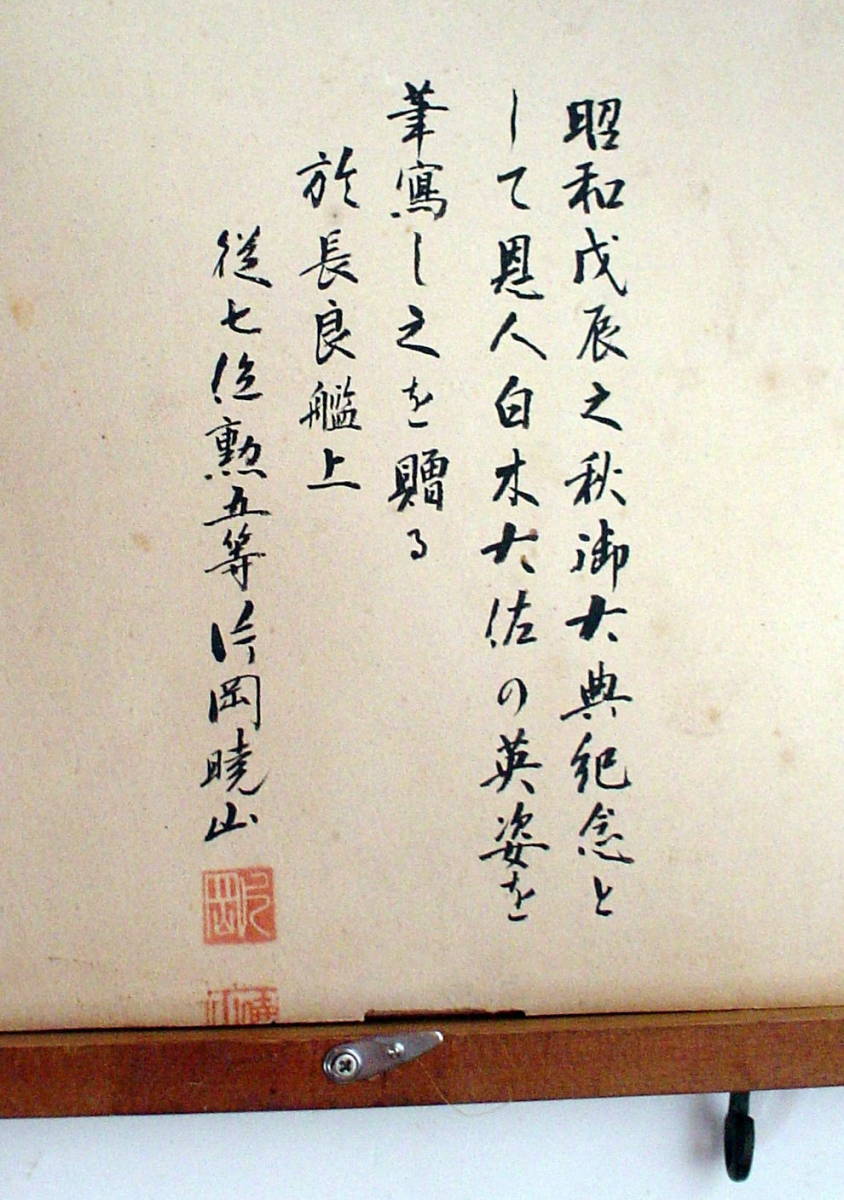 昭和戊辰之秋御大典紀念と
して恩人白木大佐の英姿を
筆寫し之を贈る
於長良艦上
從七位勲五等片岡曉山
片岡